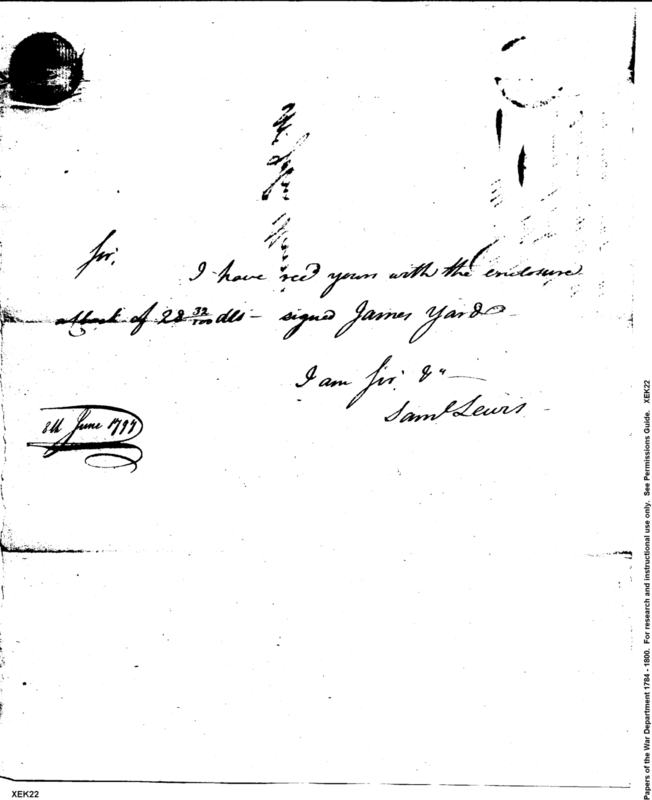 Sir,
I have recd yours with the enclosure
a Check of 28 32/100 dls — signed James Yard
I am Sir, &c —
Saml Lewis
8th June 1797
XEK22
Papers of the War Department 1784 - 1800. For research and instructional use only. See Permissions Guide. XEK22